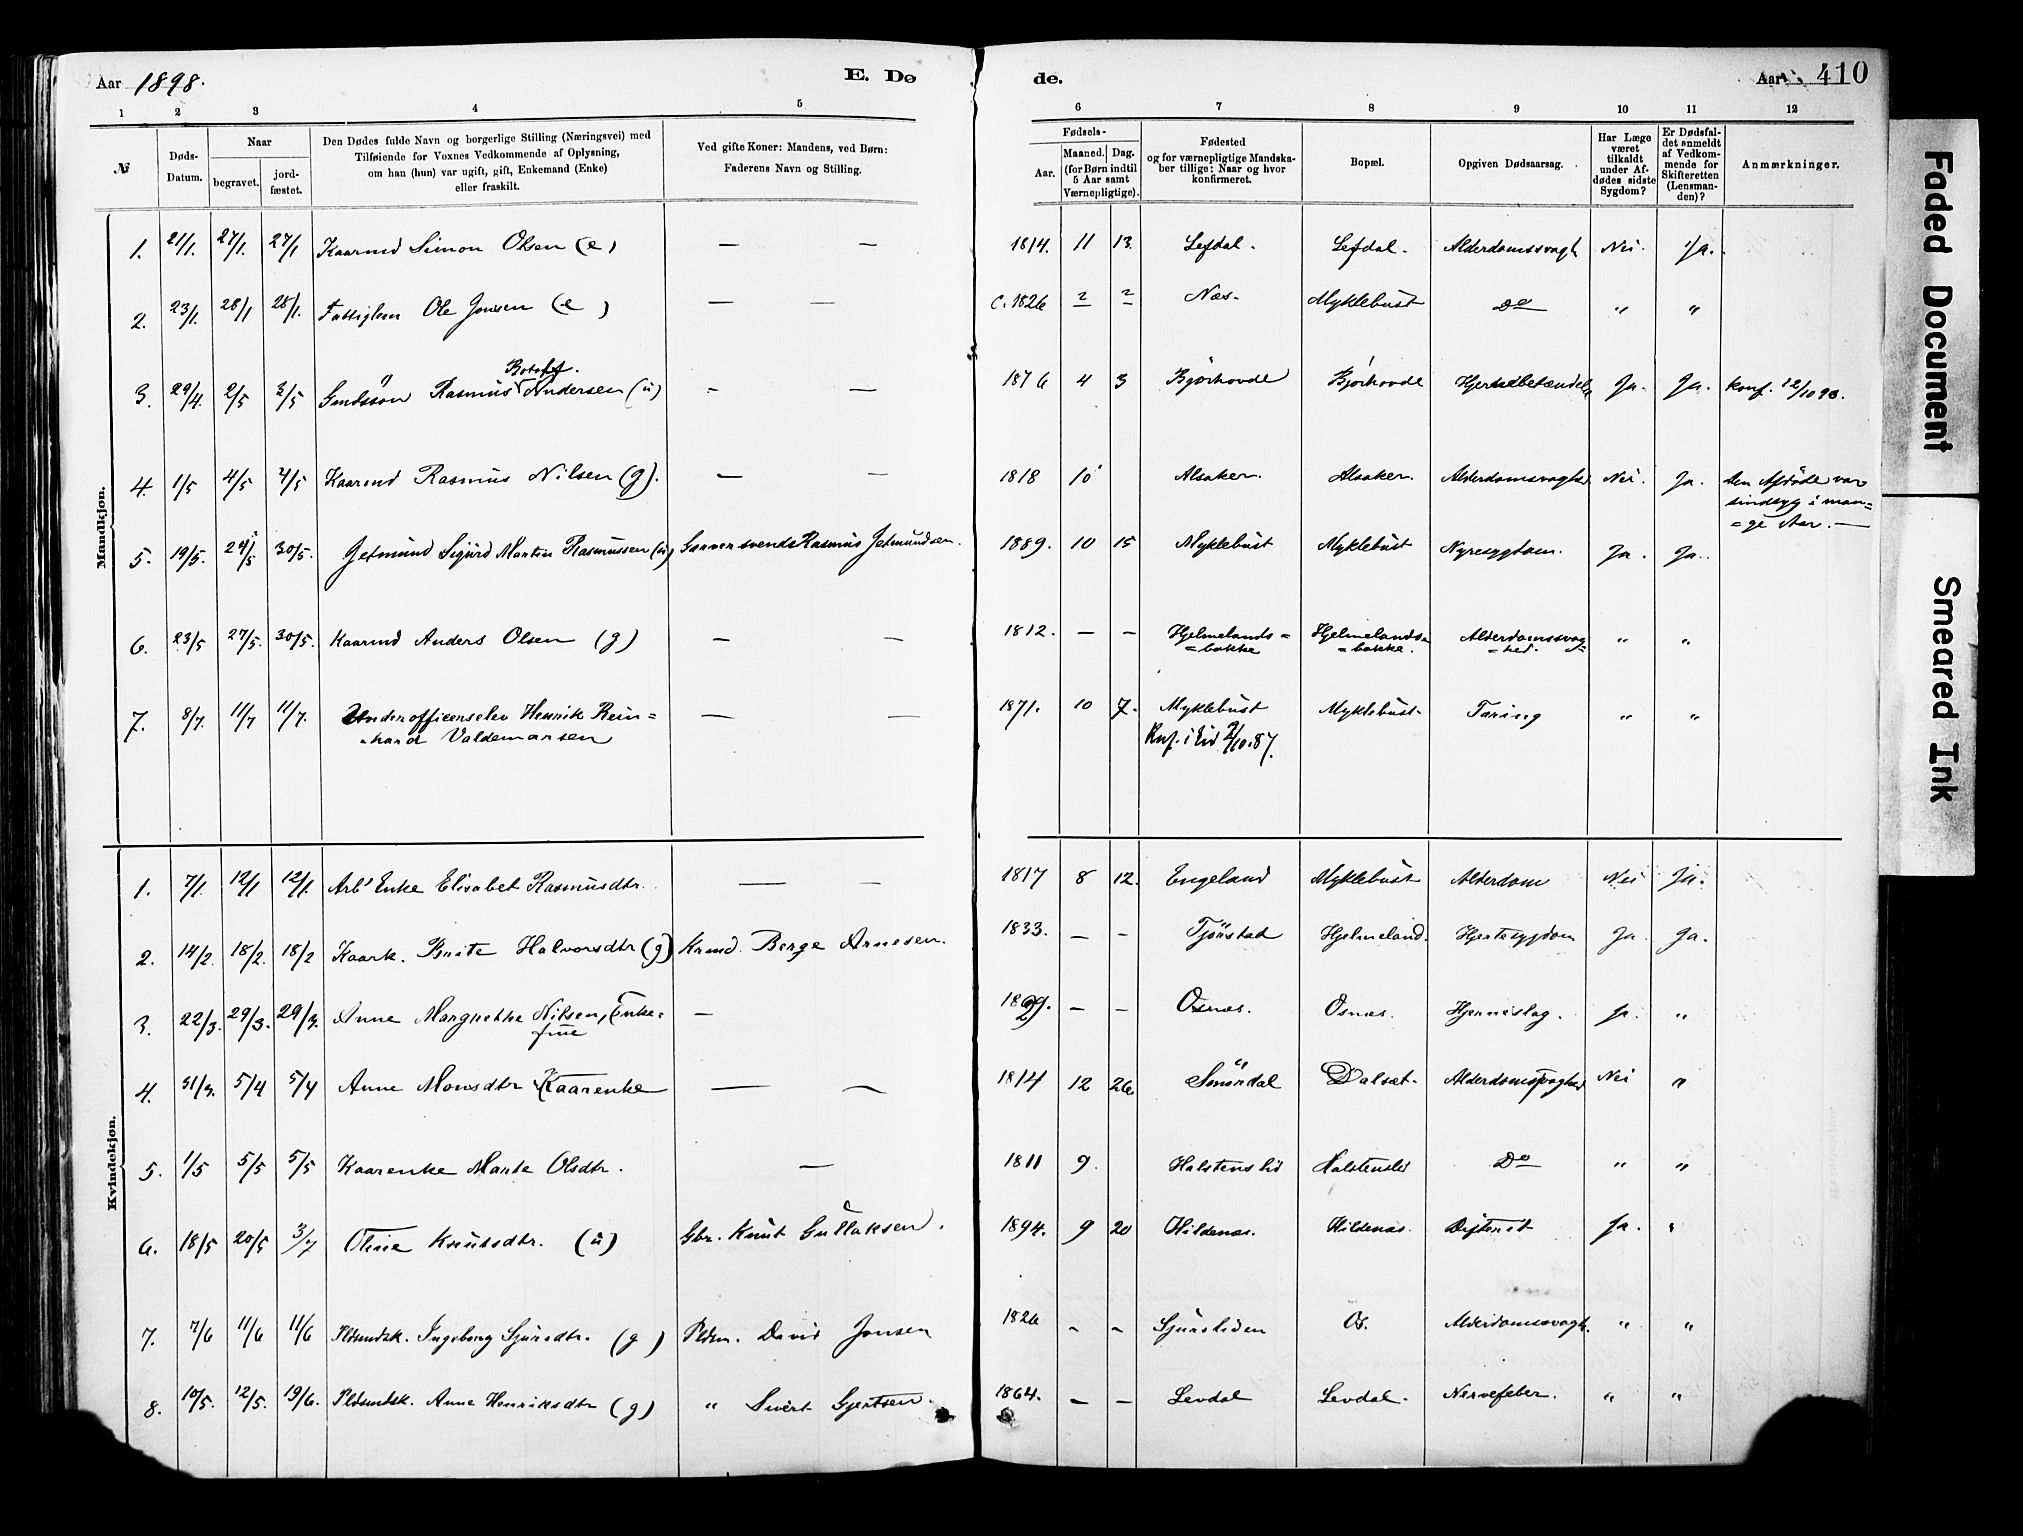 Aar 1898.
E. Dø
de.
Aar
410
1 2 3 4 5 6 7 8 9 10 11 12
№
Døds-
Datum.
Naar
begravet.
jord-
fæstet.
Den Dødes fulde Navn og borgerlige Stilling (Næringsvei) med
Tilføiende for Voxnes Vedkommende af Oplysning,
om han (hun) var ugift, gift, Enkemand (Enke)
eller fraskilt.
Ved gifte Koner: Mandens, ved Børn:
Faderens Navn og Stilling.
Fødsels-
Aar.
Maaned. Dag.
(for Børn indtil
5 Aar samt
Værnepligtige).
Fødested
og for værnepligtige Mandska-
ber tillige: Naar og hvor
konfirmeret.
Bopæl.
Opgiven Dødsaarsag.
Har Læge
været
tilkaldt
under Af-
dødes sidste
Sygdom?
Er Dødsfal-
det anmeldt
af Vedkom-
mende for
Skifteretten
(Lensman-
den)?
Anmærkninger.
Mandkjøn.
1. 21/1. 27/1. 27/1 Kaarmd Simon Olsen (e) — — 1814. 11 13. Lefdal. Lefdal. Alderdomssvagh. Nei. Ja.
2. 23/1. 28/1 28/1. Fattiglem Ole Jonsen (e) — — C. 1826 ? ? Næs. Myklebust Do " "
Botolf.
3. 29/4. 2/5 2/5 Gmdssön Rasmus Andersen (u) - — 1876 4 3 Bjørhovde Bjørhovde Hjernebetændelse Ja. Ja. Konf. 12/10 90.
4. 1/5 4/5 4/5 Kaarmd Rasmus Nilsen (g). — — 1818 10 Alsaker. Alsaker. Alderdomsvaghed Nei. Ja. den Afdöde var
sindsyg i man=
=ge Aar. —
5. 19/5. 24/5 30/5. Jetmund Sigurd Martin Rasmussen (u) Garversvend Rasmus Jetmundsen. 1889. 10 15 Myklebust Myklebust Nyresygdom. Ja. Ja.
6. 23/5 27/5. 30/5. Kaarmd Anders Olsen (g) — — 1812. — — Hjelmelands=
=bakke Hjelmelands=
=bakke. Alderdomssvag=
=hed. " "
7. 8/7. 11/7 11/7. Underofficerselev Henrik Rein=
=hard Valdemarsen — — 1871. 10 7. Myklebust Myklebust. Tæring " "
Knf. i Eid 2/10.87.
Kvindekjøn.
1. 7/1. 12/1 12/1. Arbs Enke Elisabet Rasmusdtr. — — 1817 8 12. Engeland Myklebust Alderdom Nei Ja.
2. 14/2. 18/2. 18/2 Kaark. Brite Halvorsdtr (g) Krmd. Berge Arnesen. 1833. — - Tjönstad Hjelmeland. Hjertesygdom Ja. Ja.
3. 22/3. 29/3. 29/3. Anne Margrethe Nilsen, Enke=
frue — — — Osnæs. Osnæs. Hjerneslag. Ja. "
4. 31/3. 5/4 5/4 Anne Monsdtr Kaarenke — — 1814 12 26 Smördal Dalsæt. Alderdomssvaghed Nei "
5. 1/5 5/5 5/5 Kaarenke Marte Olsdtr. — 1811 9. Halstenslid Halstenslid Do " "
6. 18/5 20/5 3/7 Oline Knutsdtr. (u) Gbr. Knut Gullaksen. 1894. 9 20 Hildenæs. Hildenæs. Difterit Ja. "
7. 7/6 11/6 11/6 Pldsmdsk. Ingeborg Sjursdtr. (g) Pldsm. David Jonsen 1826 - - Sjursliden Os. Alderdomssvagh. " "
8. 10/5. 12/5. 19/6. Pldsmdsk. Anne Henriksdtr (g) " Sivert Gjertsen. 1864. — — Levdal Levdal. Nervefeber. " "
Faded Document
Smeared Ink